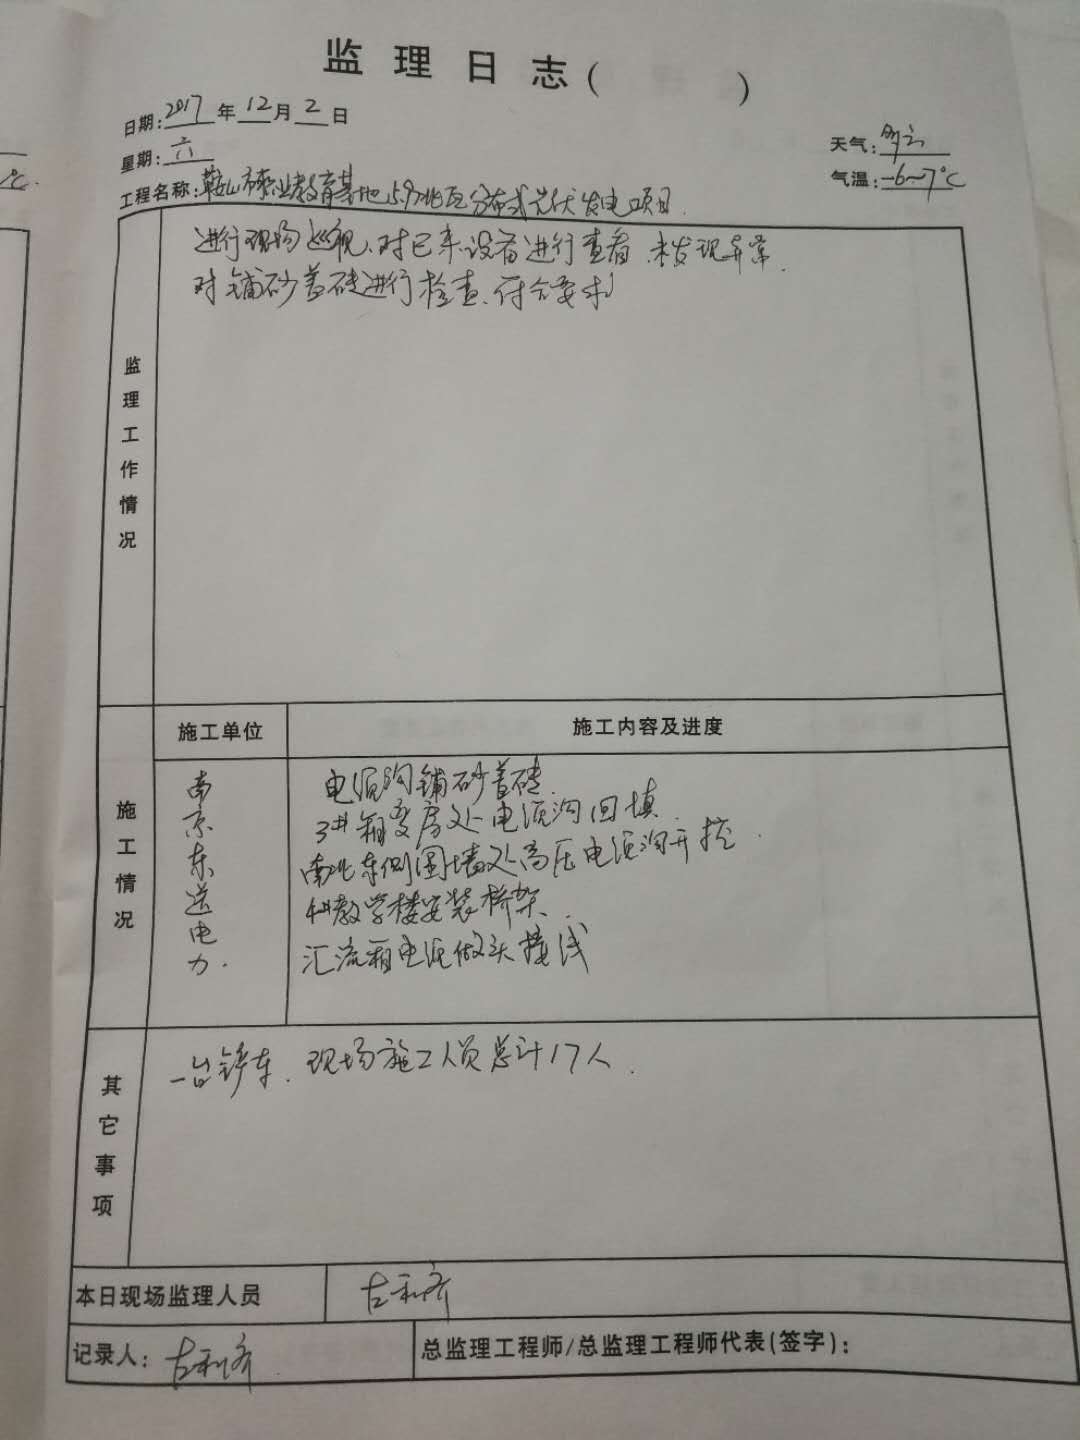 监理日志( )
日期:2017年12月2日
星期:六
天气:多云
气温:-6~7℃
工程名称:鞍山市职业教育基地5.97兆瓦分布式光伏发电项目.
监理工作情况
进行现场巡视、对已来设备进行查看.未发现异常.
对铺砂盖砖进行检查、符合要求
施工单位
施工内容及进度
施工情况
南京东送电力.
电缆沟铺砂盖砖.
3#箱变房处电缆沟回填.
南北东侧围墙处高压电缆沟开挖.
科教学楼安装桥架.
汇流箱电缆做头接线
其它事项
一台铲车.现场施工人员总计17人.
本日现场监理人员
左利齐
记录人:左利齐
总监理工程师/总监理工程师代表(签字):